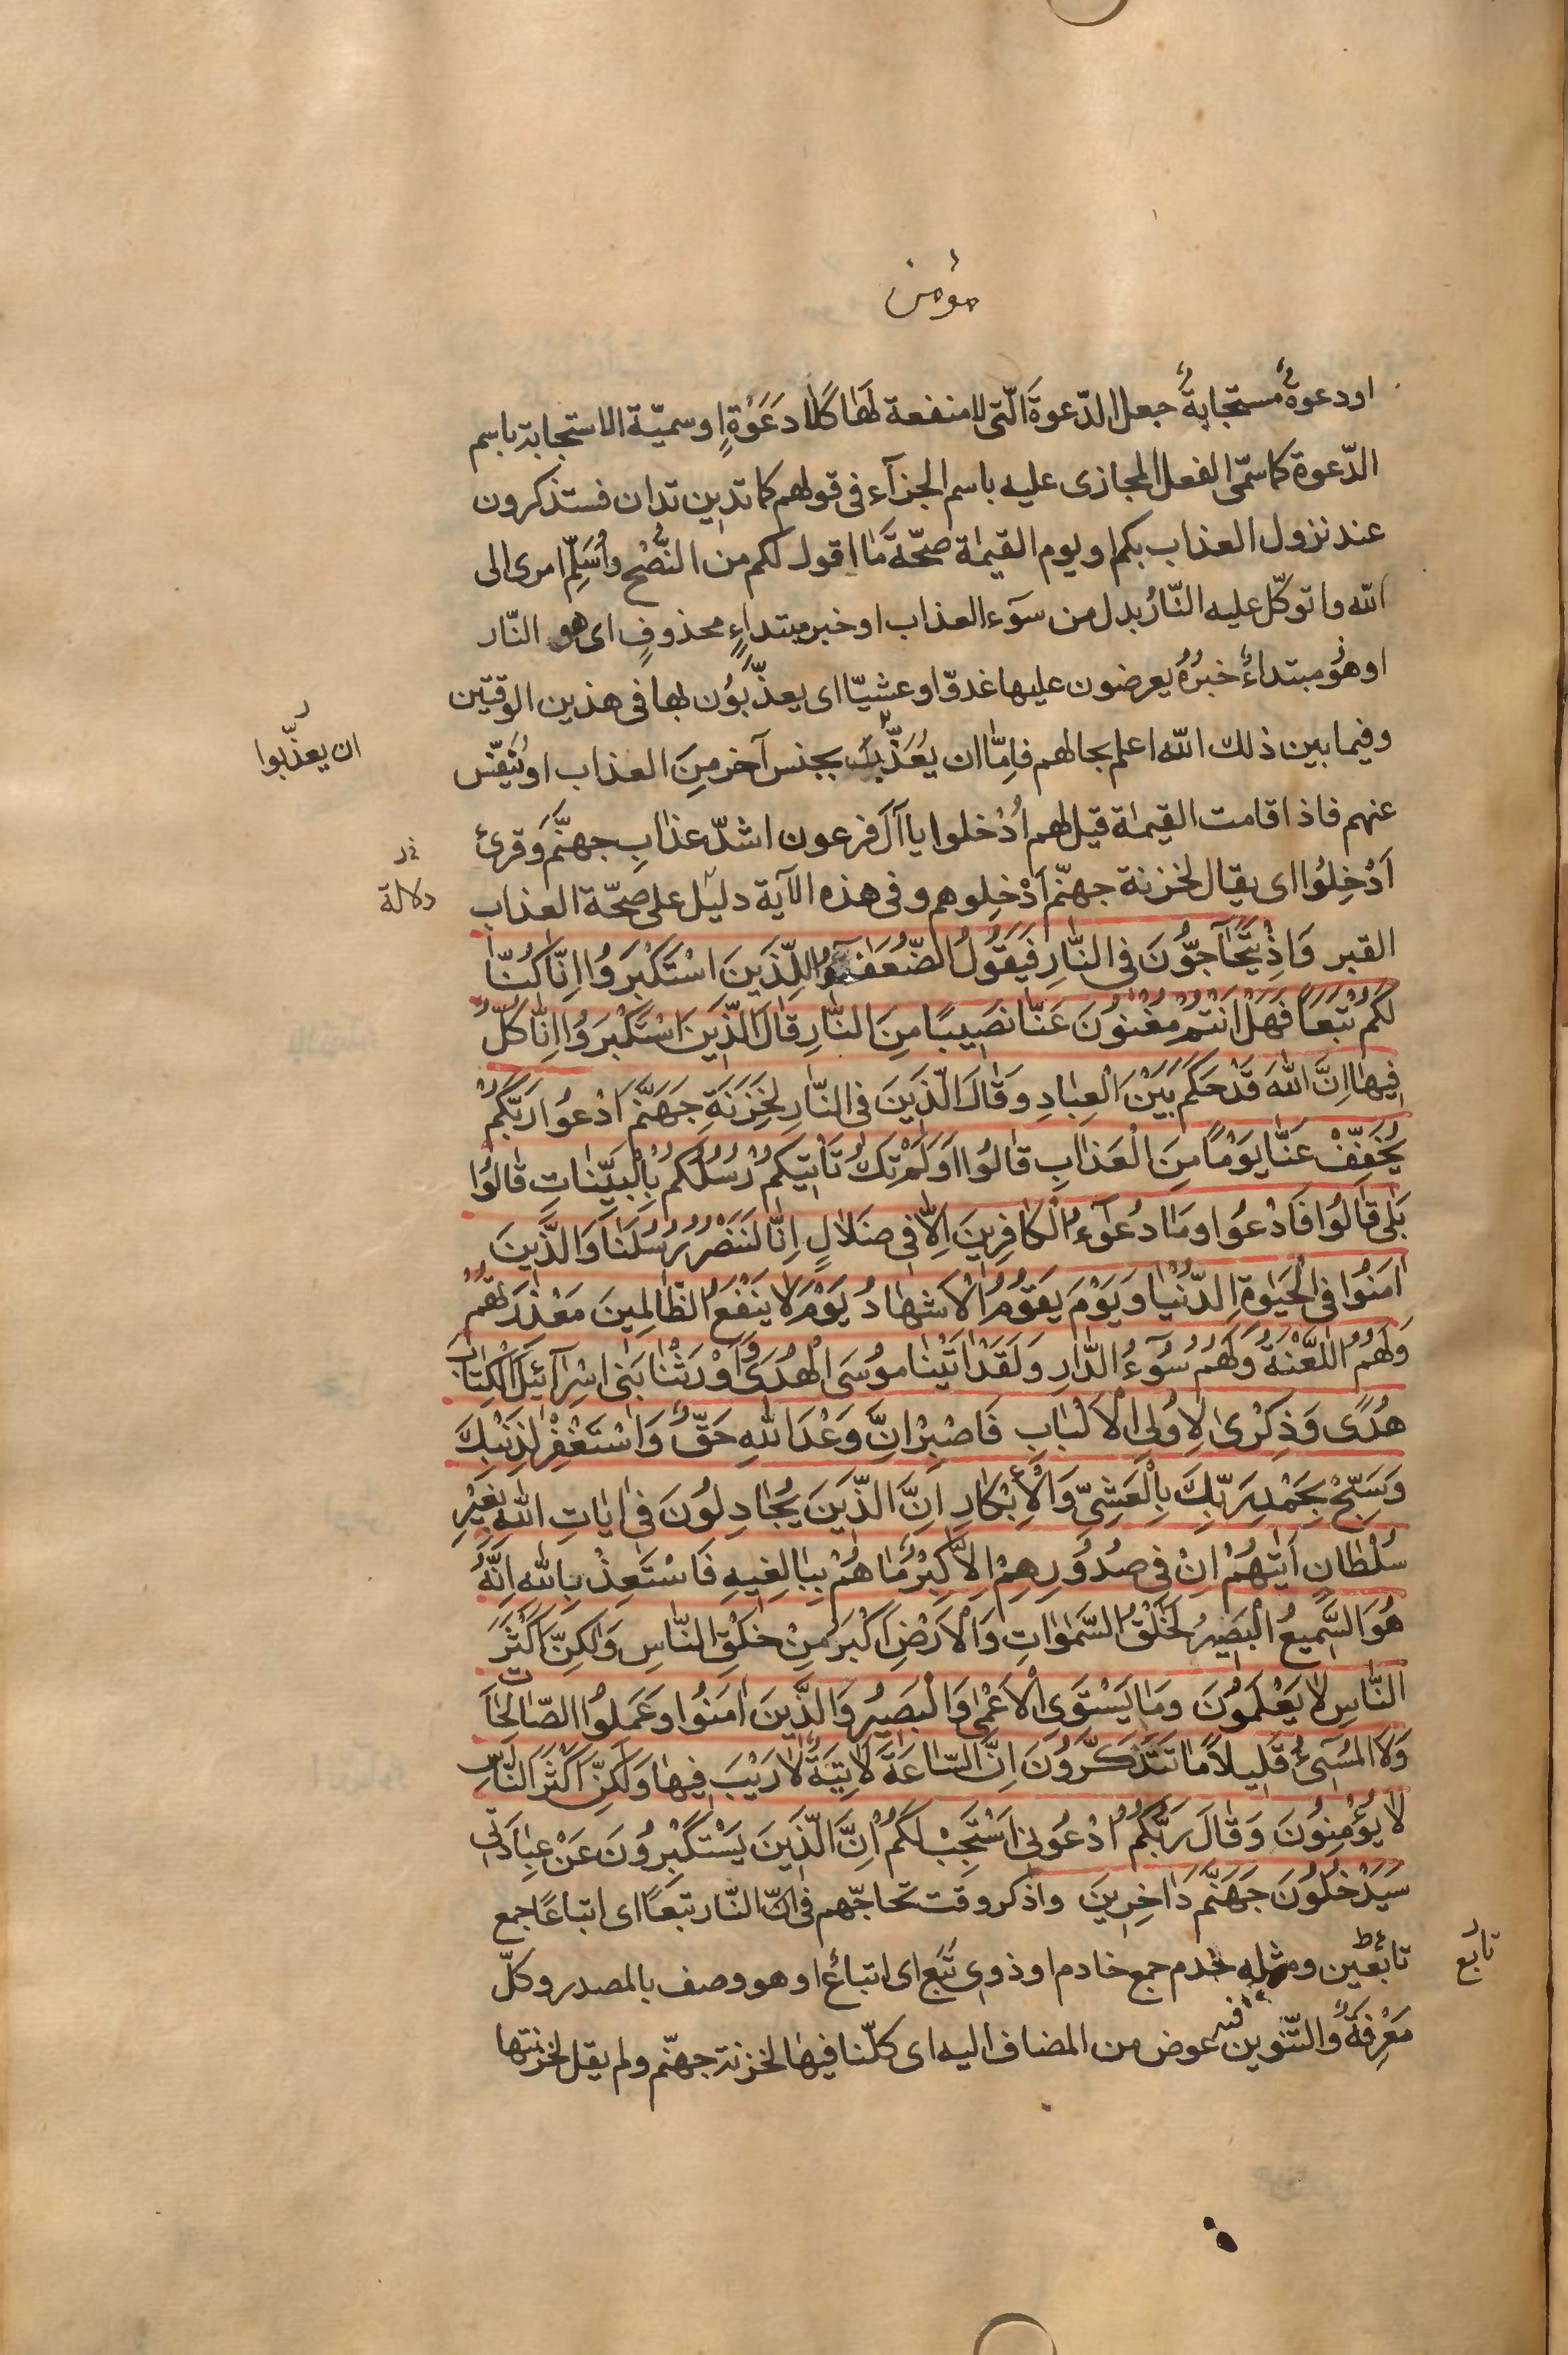 مؤمن
او دعوةٌ مستجابةٌ جعل الدّعوةَ الّتى لا منفعة لَهَا كَلَا دَعْوَةٍ او سميّة الاستجابة باسم
الدّعوة كما سمّى الفعل المجازى عليه باسم الجزآء فى قولهم كما تدين تدان فستذكرون
عند نزول العذاب بكم او يوم القيمٰة صحّةَ مَا اقول لكم من النُّصْحِ واُسَلِّمُ امرى الى
اللّٰه واتوكّل عليه النّارُ بدل من سوٓء العذاب او خبر مبتداءٍ محذوفٍ اى هو النّار
او هُوَ مبتداءٌ خبرُهُ يعرضون عليها غدوّا وعشيّا اى يعذّبُوُن بها فى هذين الوقتين
وفيما بين ذلك اللّٰه اعلم بحالهم فاِمّا ان يُعَذَّبَ بجنس آخر مِنَ العذاب او يُنَفّس
ان يعذّبوا
عنهم فاذا قامت القيمٰة قيل لهم اُدْخلوا يا آلَ فرعون اشدّ عذابِ جهنَّم وَقرئ
اَدْخِلُوا اى يقال لخزنة جهنّم اَدْخِلوهم وفى هذه الآية دليل على صحّة العذاب
دلالة
القبر وَاِذْ يَتَحَآجُّوُنَ فِى النَّارِ فَيَقُولُ الضُّعَفٰٓؤُا لِلَّذَيِنَ اسْتَكْبَرَوُا اِنَّا كُنَّا
لَكُمْ تَبَعَاً فَهَلْ اَنْتُمْ مُغْنُوُنَ عَنَّا نَصَيِبًا مِنَ النَّارِ قَالَ الَّذَيِنَ اسْتَكْبَرَوُا اِنَّا كُلٌّ
فِيهَا اِنَّ اللّٰهَ قَدْ حَكَمَ بَيْنَ الْعِبٰادِ وَقَالَ الَّذَيِنَ فِى النَّارِ لِخَزَنَةِ جَهَنَّمَ ادْعُوا رَبَّكُمْ
يُخَفِّفْ عَنَّا يَوْمًا مِنَ الْعَذَابِ قَالُوا اَوَلَمْ تَكُ تَأْتيِكُمْ رُسُلُكُمْ بِالْبَيِّنَاتِ قَالُوا
بَلٰى قَالُوا فَادْعُوا وَمَا دُعٰٓوءُ الْكَافِرِينَ اِلَّا فِى ضَلَالٍ اِنَّا لَنَنْصُرُ رُسُلَنَا وَالَّذَيِنَ
اٰمَنُوا فِى الْحَيٰوةِ الدُّنْيَا وَيَوْمَ يَقُومُ الْاَشْهَادُ يَوْمَ لَا يَنْفَعُ الظَّالِمِينَ مَعْذِرَتُهُمْ
وَلَهُمُ اللَّعْنَةُ وَلَهُمْ سُوٓءُ الدَّارِ وَلَقَدْ اٰتَيْنَا مُوسَى الْهُدَى وَاَوْرَثْنَا بَنِى اِسْرَآئِيلَ الْكِتَابَ
هُدًى وَذِكْرٰى لِاُولِى الْاَلْبَابِ فَاصْبِرْ اِنَّ وَعْدَ اللّٰهِ حَقٌّ وَاسْتَغْفِرْ لِذَنْبِكَ
وَسَبِّحْ بِحَمْدِ رَبِّكَ بِالْعَشِىِّ وَالْاِبْكَارِ اِنَّ الَّذَيِنَ يُجَادِلُونَ فِى اٰيَاتِ اللّٰهِ بِغَيْرِ
سُلْطَانٍ اَتٰيهُمْ اِنْ فِى صُدُورِهِمْ اِلَّا كِبْرٌ مَا هُمْ بِبَالِغِيهِ فَاسْتَعِذْ بِاللّٰهِ اِنَّهُ
هُوَ السَّمِيعُ الْبَصِيرُ لَخَلْقُ السَّمٰوَاتِ وَالْاَرْضِ اَكْبَرُ مِنْ خَلْقِ النَّاسِ وَلٰكِنَّ اَكْثَرَ
النَّاسِ لَا يَعْلَمُونَ وَمَا يَسْتَوِى الْاَعْمٰى وَالْبَصِيرُ وَالَّذَيِنَ اٰمَنُوا وَعَمِلُوا الصَّالِحَاتِ
وَلَا الْمُسِىٓءُ قَلِيلاً مَا تَتَذَكَّرُونَ اِنَّ السَّاعَةَ لَاٰتِيَةٌ لَا رَيْبَ فِيهَا وَلٰكِنَّ اَكْثَرَ النَّاسِ
لَا يُؤْمِنُونَ وَقَالَ رَبُّكُمُ ادْعُونِى اَسْتَجِبْ لَكُمْ اِنَّ الَّذَيِنَ يَسْتَكْبِرُونَ عَنْ عِبَادَتِى
سَيَدْخُلُونَ جَهَنَّمَ دَاخِرِينَ واذكر وقت تحاجّهم فى النّار تبَعًا اى اتباعًا جمع
تابعين ومثله خدم جمع خادم او ذوى تَبَع اى اتباع او هو وصف بالمصدر وكلّ
تابع
مَعْرِفةٌ والتّنوين فيه عوض من المضاف اليه اى كلّنا فيها لخزنة جهنّم ولم يقل لخزنتها